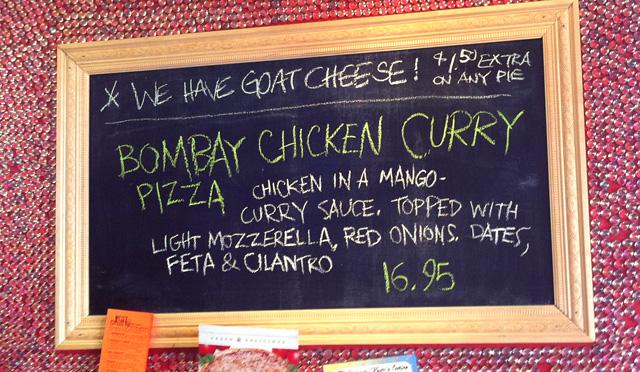 * WE HAVE GOAT CHEESE! $1.50 EXTRA
ON ANY PIE
BOMBAY CHICKEN CURRY
PIZZA CHICKEN IN A MANGO-
CURRY SAUCE. TOPPED WITH
LIGHT MOZZERELLA, RED ONIONS, DATES,
FETA & CILANTRO 16.95